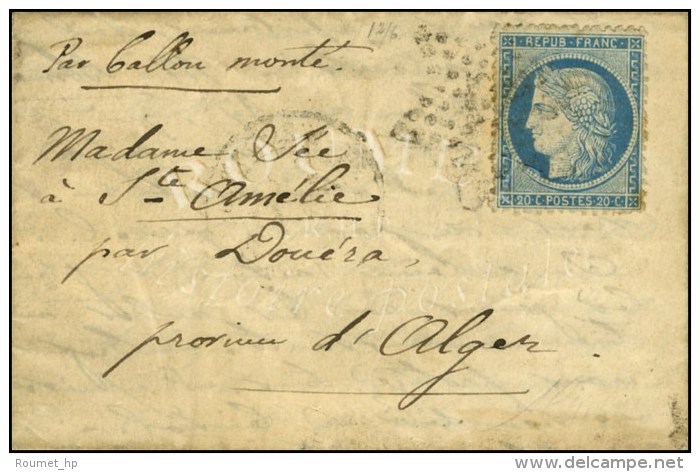 12/6
Par Ballon monté.
REPUB·FRANC
20·C·POSTES·20·C
Madame Sée
à Ste Amélie
par Douéra,
province d'Alger.
histoire postale
Roumet_hp
www.delcampe.net